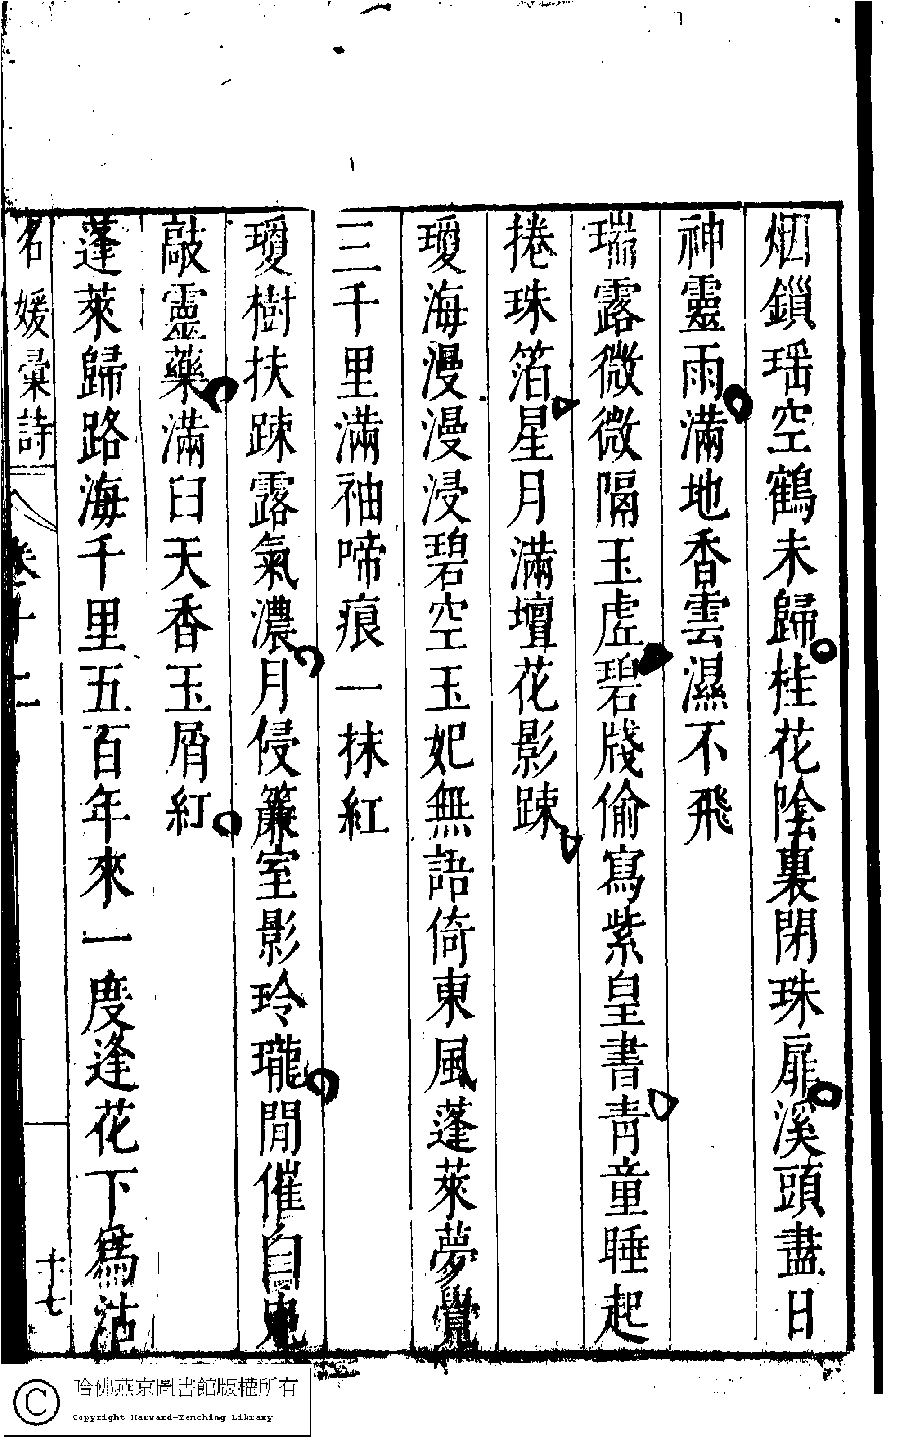 烟鎖瑶空鶴未歸桂花陰裏閉珠扉溪頭盡日
神靈雨滿地香雲濕不飛
瑞露微微隔玉虛碧牋偷寫紫皇書青童睡起
捲珠箔星月滿壇花影踈
瓊海漫漫浸碧空玉妃無語倚東風蓬萊夢覺
三千里滿袖啼痕一抹紅
瓊樹扶踈露氣濃月侵簾室影玲瓏閒催白兎
敲靈藥滿臼天香玉屑紅
蓬萊歸路海千里五百年來一度逢花下爲沽
名媛彙詩 卷十二 十七
哈佛燕京圖書館版權所有
Copyright Harvard-Yenching Library